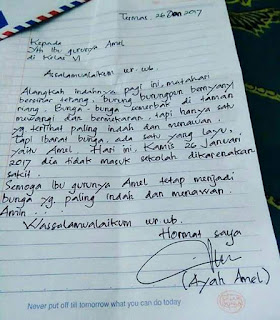 Ternat, 26 Jan 2017
Kepada
Yth Ibu gurunya Amel
di Kelas VI
Assalamualaikum wr. wb.
Alangkah indahnya pagi ini, matahari
bersinar terang, burung burungpun bernyanyi
riang. Bunga-bunga semerbak di taman
mewangi dan bermekaran, tapi hanya satu
yg terlihat paling indah dan menawan.
Tapi ibarat bunga, ada satu yang layu,
yaitu Amel. Hari ini, Kamis 26 Januari
2017 dia tidak masuk sekolah dikarenakan
sakit.
Semoga Ibu gurunya Amel tetap menjadi
bunga yg paling indah dan menawan.
Amin...
Wassalamualaikum wr. wb.
Hormat saya
(Ayah Amel)
Never put off till tomorrow what you can do today